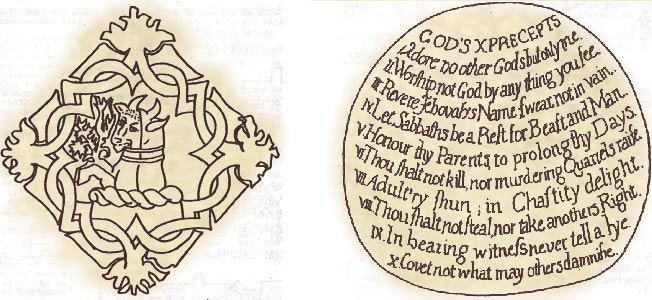 GOD'S X PRECEPTS
I Adore no other Gods but only me.
II Worſhip not God by any thing you ſee.
III Revere Jehovahs Name ſwear not in vain.
IV Let Sabbaths be a Reſt for Beaſt and Man.
V Honour thy Parents to prolong thy Days.
VI Thou ſhalt not kill, nor murdering Quarrels raiſe
VII Adult'ry ſhun ; in Chaſtity delight.
VIII Thou ſhalt not ſteal, nor take anothers Right.
IX In bearing witneſs never tell a lye.
X Covet not what may others damniſie.